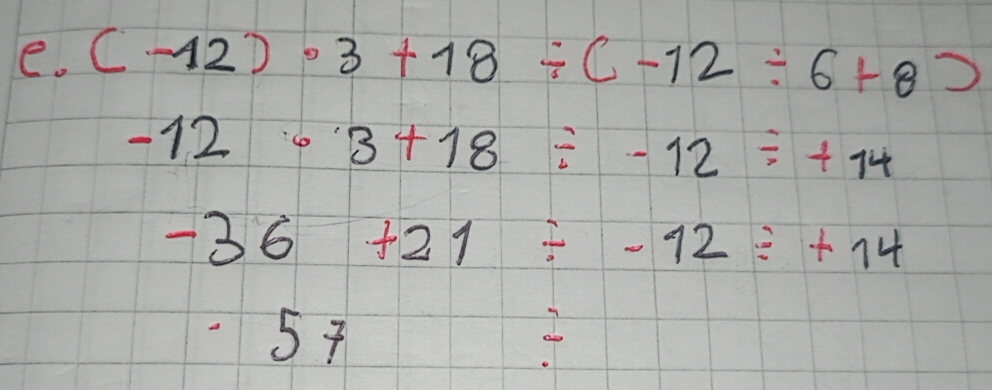 e. (-12) • 3 + 18 ÷ (-12 ÷ 6 + 8)
-12 • 3 + 18 ÷ -12 ÷ +14
-36 +21 ÷ -12 ÷ +14
- 57 ÷